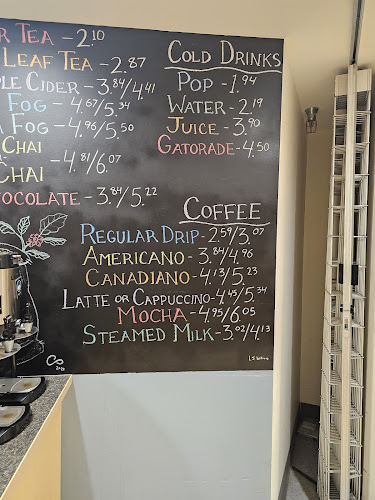 R TEA - 2.10
LEAF TEA - 2.87
LE CIDER - 3.84/4.41
FOG - 4.67/5.34
FOG - 4.96/5.50
CHAI
CHAI - 4.81/6.07
OCOLATE - 3.84/5.22
COLD DRINKS
POP - 1.94
WATER - 2.19
JUICE - 3.90
GATORADE - 4.50
COFFEE
REGULAR DRIP - 2.59/3.07
AMERICANO - 3.84/4.96
CANADIANO - 4.13/5.23
LATTE OR CAPPUCCINO - 4.45/5.34
MOCHA - 4.95/6.05
STEAMED MILK - 3.02/4.13